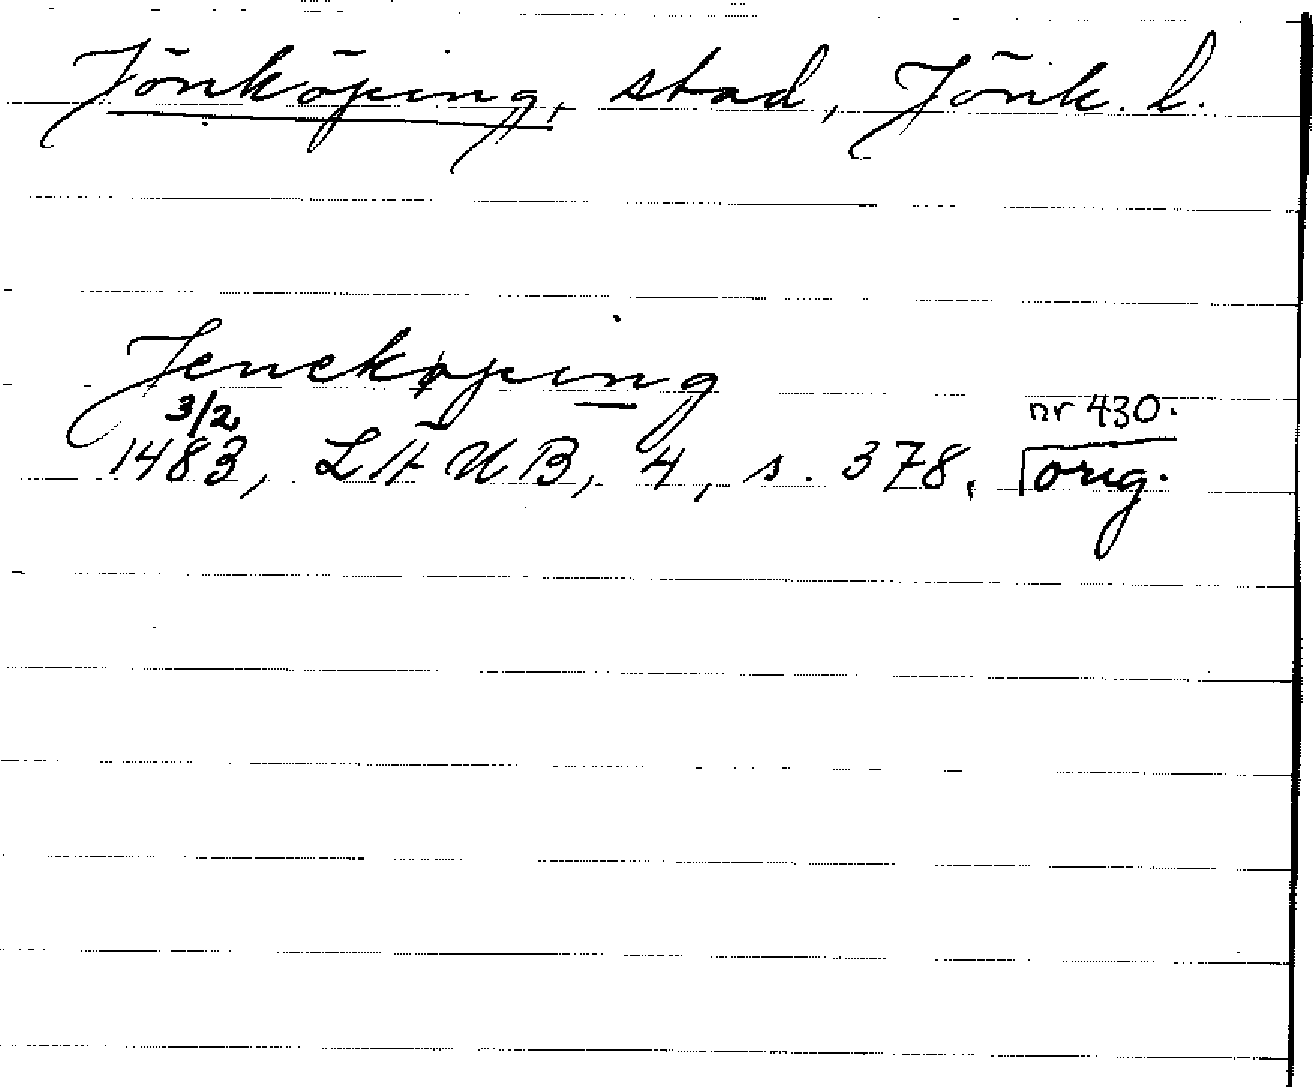 Jönköping, stad, Jönk. l.
Jenekøping
3/2
nr 430.
1483, LÄUB, 4, s. 378. orig.